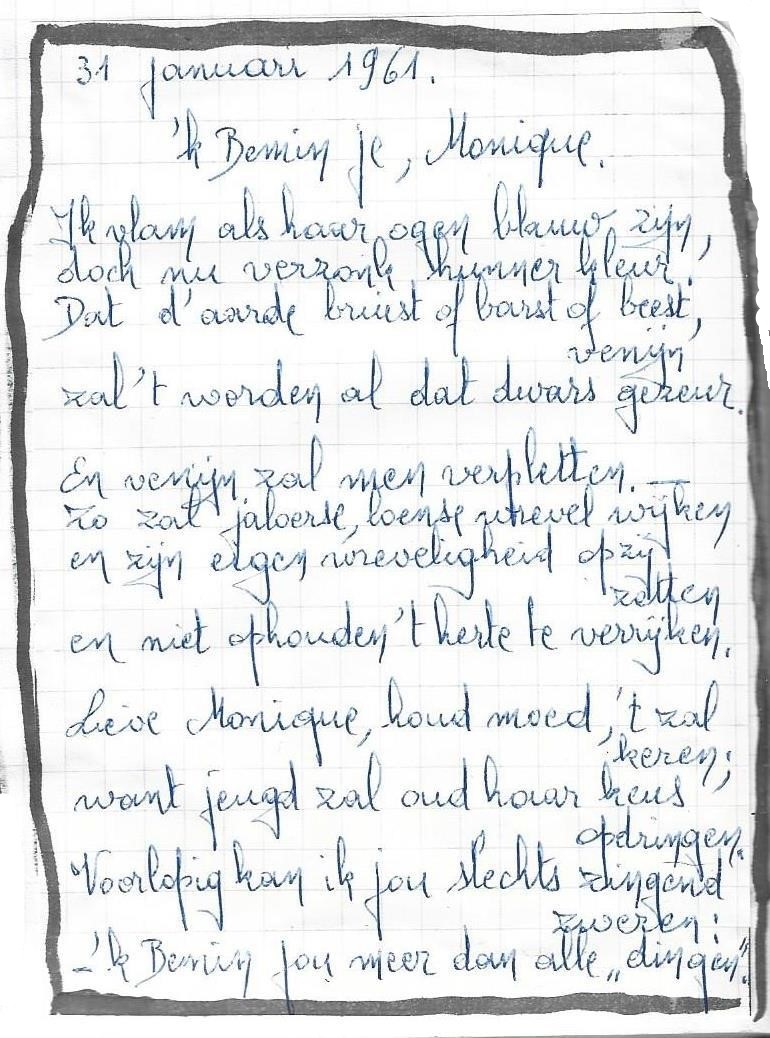 31 januari 1961.
'k Bemin je, Monique.
Ik vlam als haar ogen blauw zijn,
doch nu verzonk hunner kleur.
Dat d'aarde bruist of barst of beest,
venijn
zal 't worden al dat dwars gezeur.
En venijn zal men verpletten. —
Zo zal jaloerse, loense wrevel wijken
en zijn eigen wreveligheid opzij
zetten
en niet ophouden 't herte te verrijken.
Lieve Monique, houd moed, 't zal
keren;
want jeugd zal oud haar keus
opdringen.
Voorlopig kan ik jou slechts zingend
zweren:
-'k Bemin jou meer dan alle „dingen".